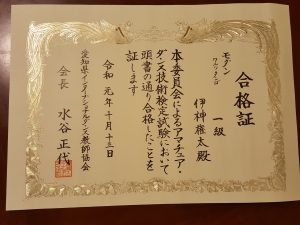 合格証
モダン
ワルツ・タンゴ
一級
伊神権太殿
本委員会によるアマチュア・
ダンス技術検定試験において
頭書の通り合格したことを
証します
令和元年十月十三日
愛知県インターナショナルダンス教師協会
会長 水谷正代